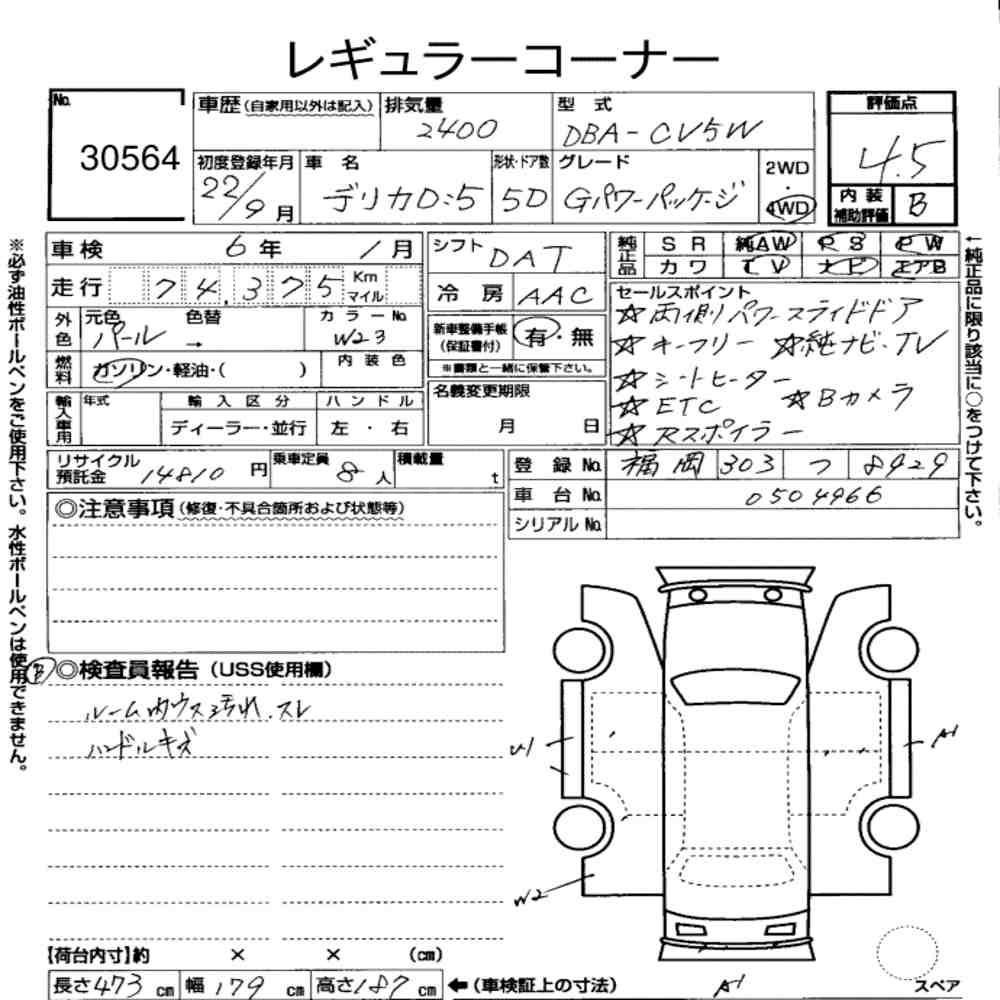 レギュラーコーナー
No.
30564
車歴(自家用以外は記入)
排気量
2400
型式
DBA-CV5W
評価点
4.5
内装補助評価
B
初度登録年月
22/9月
車名
デリカD:5
形状・ドア数
5D
グレード
Gパワーパッケージ
2WD
・
4WD
※必ず油性ボールペンをご使用下さい。水性ボールペンは使用できません。
車検 6年 1月
走行 74,375 Km マイル
外色
元色 パール
→
色替
カラーNo.
W23
燃料
ガソリン・軽油・( )
内装色
輸入車用
年式
輸入区分
ディーラー・並行
ハンドル
左・右
リサイクル預託金 14810円
乗車定員 8人
積載量 t
シフト DAT
冷房 AAC
新車整備手帳(保証書付)
有・無
※書類と一緒に保管下さい。
名義変更期限
月 日
純正品
SR 純AW PS PW
カワ TV ナビ エアB
セールスポイント
☆両側パワースライドドア
☆キーフリー ☆純ナビ・TV
☆シートヒーター
☆ETC ☆Bカメラ
☆Rスポイラー
←純正品に限り該当に○をつけて下さい。
登録No. 福岡 303 つ 8929
車台No. 0504966
シリアルNo.
◎注意事項(修復・不具合箇所および状態等)
B
◎検査員報告(USS使用欄)
ルーム内ウス汚れ.スレ
ハンドルキズ
U1
A1
W2
A1
スペア
【荷台内寸】約 × × (cm)
長さ473cm 幅179cm 高さ187cm ←(車検証上の寸法)